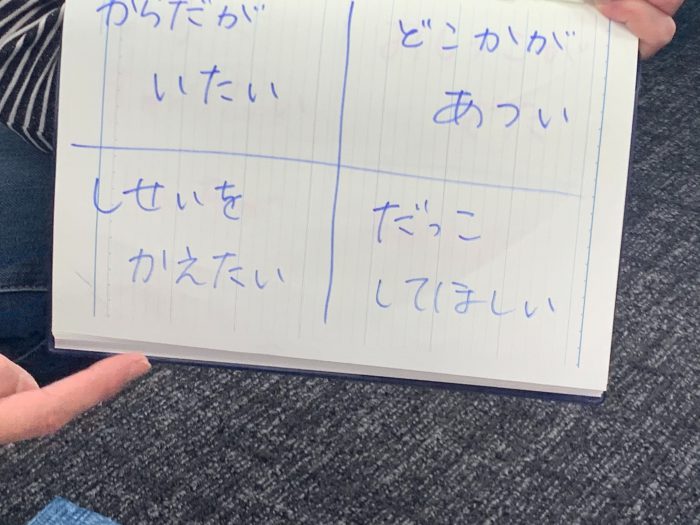 からだが
いたい
どこかが
あつい
しせいを
かえたい
だっこ
してほしい